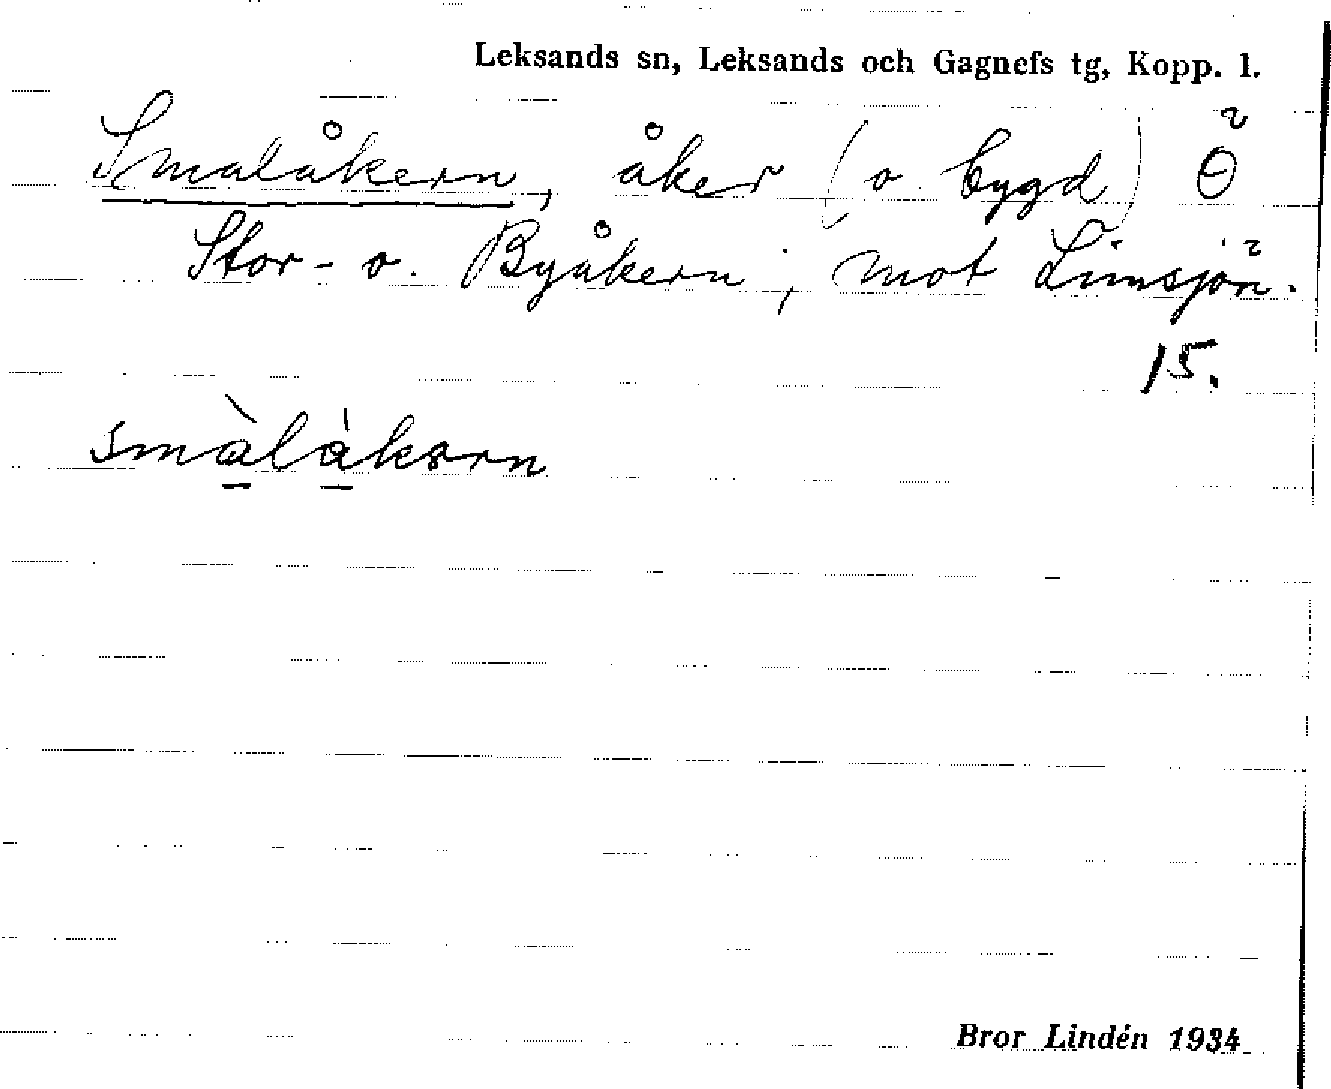 Leksands sn, Leksands och Gagnefs tg, Kopp. l.
Smalåkern, åker (o. bygd) Ö
Stor- o. Byåkern, mot Limsjön.
15.
smàlàkərn
Bror Lindén 1934